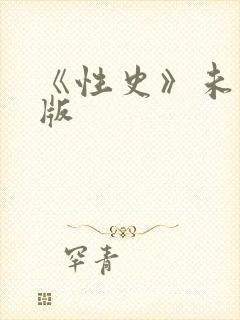 《性史》未
版
罕青